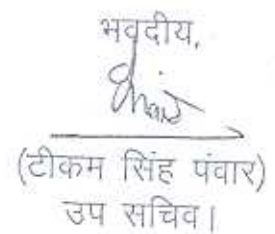 भवदीय,
(टीकम सिंह पंवार)
उप सचिव।